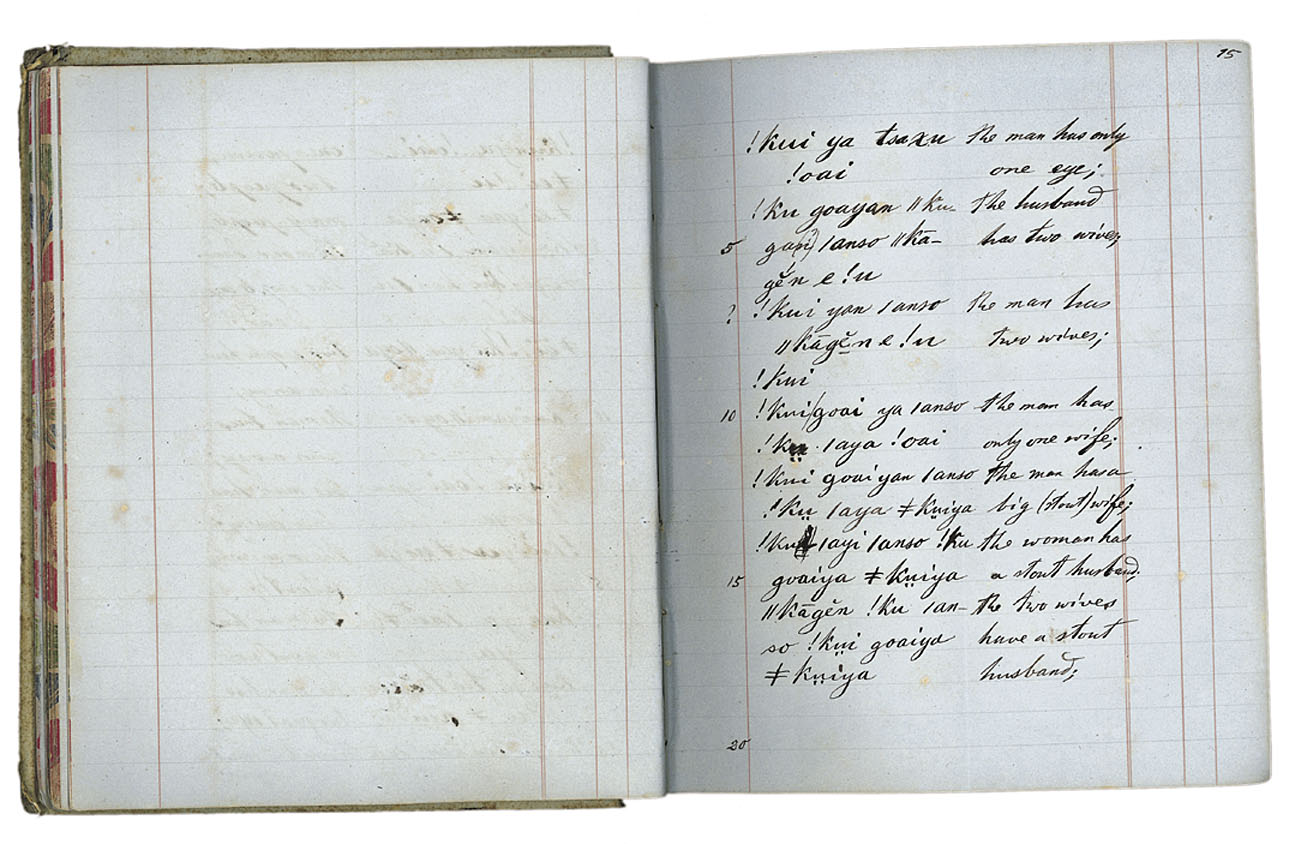 15
!kui ya tsaxu the man has only
!oai one eye;
!ku goayan ǁku- the husband
5 gan) ǀanso ǁkā- has two wives;
gěn e !u
? !kui yan ǀanso the man has
ǁkāgěn e !u two wives;
!kui
10 !kui/goai ya ǀanso the man has
ǀaya !oai only one wife;
!kui goaiyan ǀanso the man has a
!kṳ ǀaya ǂkṳiya big (stout) wife;
ǀayi ǀanso !ku the woman has
15 goaiya ǂkṳiya a stout husband;
ǁkāgěn !ku ǀan- the two wives
so !kṳi goaiya have a stout
ǂkṳiya husband;
20